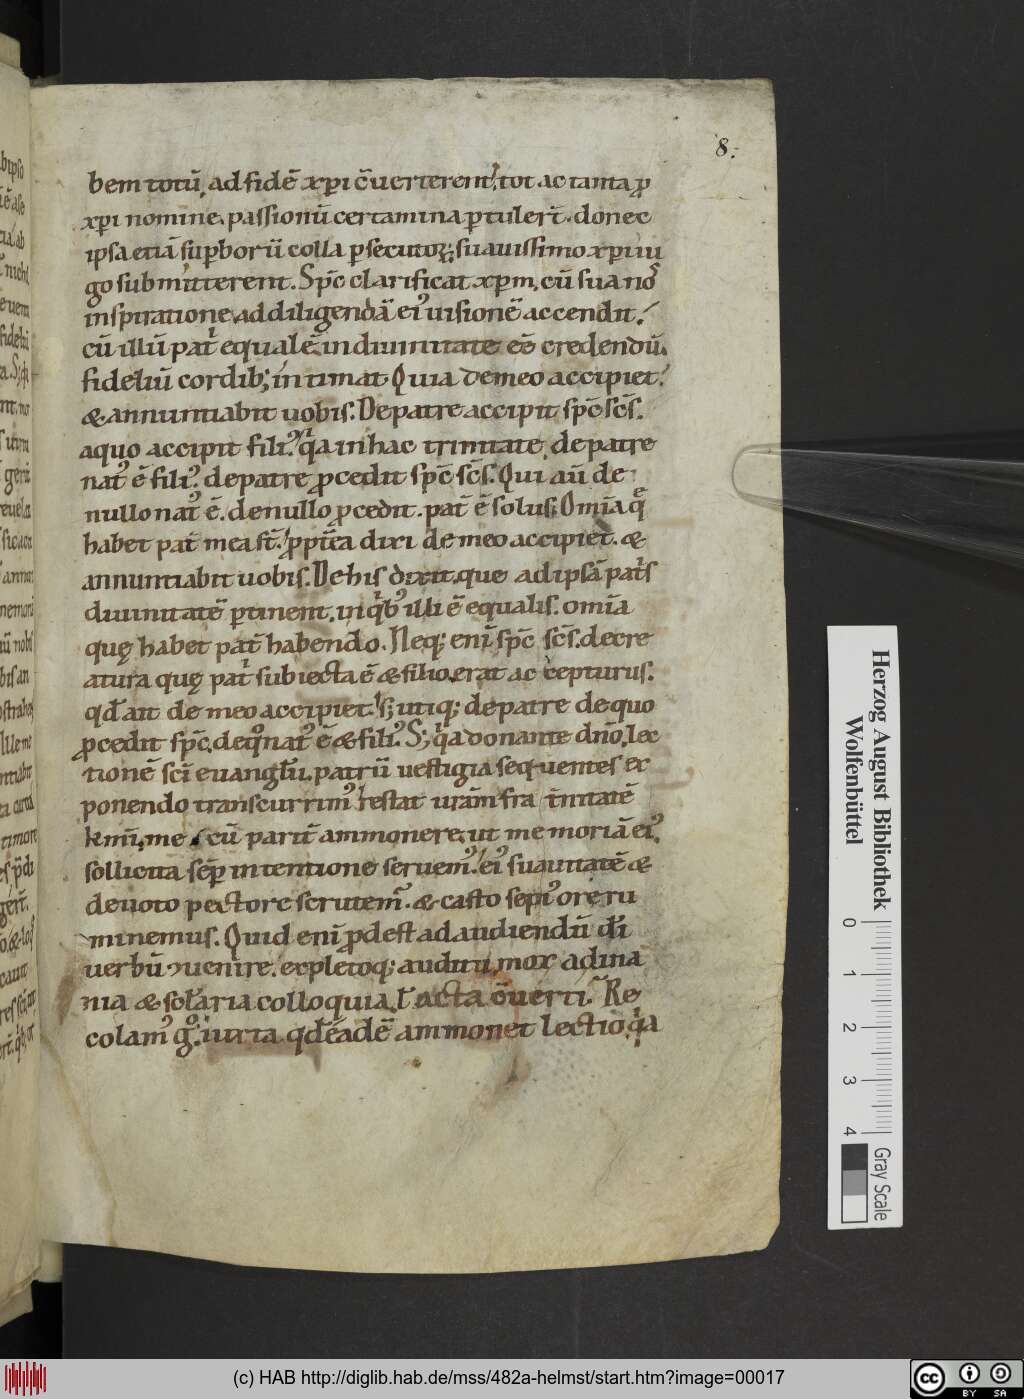 8.
bem totū, ad fidē xp̄i c̄uerterent, tot ac tanta ꝓ
xp̄i nomine, passionū certamina ꝑtuler̄t. donec
ipsa etiā suꝑborū colla ꝑsecutoꝝ, suauissimo xp̄i iu
go submitterent. Sp̄c clarificat xp̄m, cū sua nō
inspiratione, ad diligendā eiꝰ uisionē accendit.
cū illū patͥ equalē in diuinitate eē credendū,
fideliū cordibꝫ intimat. Quia demeo accipiet.
& annuntiabit uobis. De patre accipit sp̄c sc̄s.
a quo accipit filiꝰ. qͥa in hac trinitate, de patre
natꝰ ē filiꝰ. de patre ꝓcedit sp̄c sc̄s. Qui aū de
nullo natꝰ ē. de nullo ꝓcedit. pat̄ ē solus. Om̄ia q̄
habet pat̄ mea st̄. ꝓpt̄ea dixi de meo accipiet. &
annuntiabit uobis. De his dixit, que ad ipsā pat̄s
diuinitatē ꝑtinent, in qͥbꝰ illi ē equalis. om̄ia
quę habet pat̄ habendo. Neqꝫ enī sp̄c sc̄s. decre
atura quę patͥ subiecta ē & filio, erat accepturus.
qd̄ ait de meo accipiet. sꝫ utiqꝫ de patre de quo
ꝓcedit sp̄c, de qͦ natꝰ ē & filiꝰ. Sꝫ qͥa donante dn̄o, lec
tionē sc̄i euangl̄ii, patrū uestigia sequentes ex
ponendo transcurrimꝰ, restat urām fr̄a t̄nitatē
km̄i, me cū parit̄ ammonere, ut memoriā eiꝰ,
sollicita sēꝑ intentione seruemꝰ. eiꝰ suauitatē &
deuoto pectore scrutemꝰ. & casto sepiꝰ ore ru
minemus. Quid enī ꝓdest ad audiendū dī
uerbū uenire. expletoqꝫ auditu, mox ad ina
nia & sc̄laria colloquia, l̄ acta c̄uerti. Re
colamꝰ gͦ. iuxta qd̄ eadē ammonet lectio, qͥa
Herzog August Bibliothek
Wolfenbüttel
0 1 2 3 4
Gray Scale
(c) HAB http://diglib.hab.de/mss/482a-helmst/start.htm?image=00017
cc BY SA